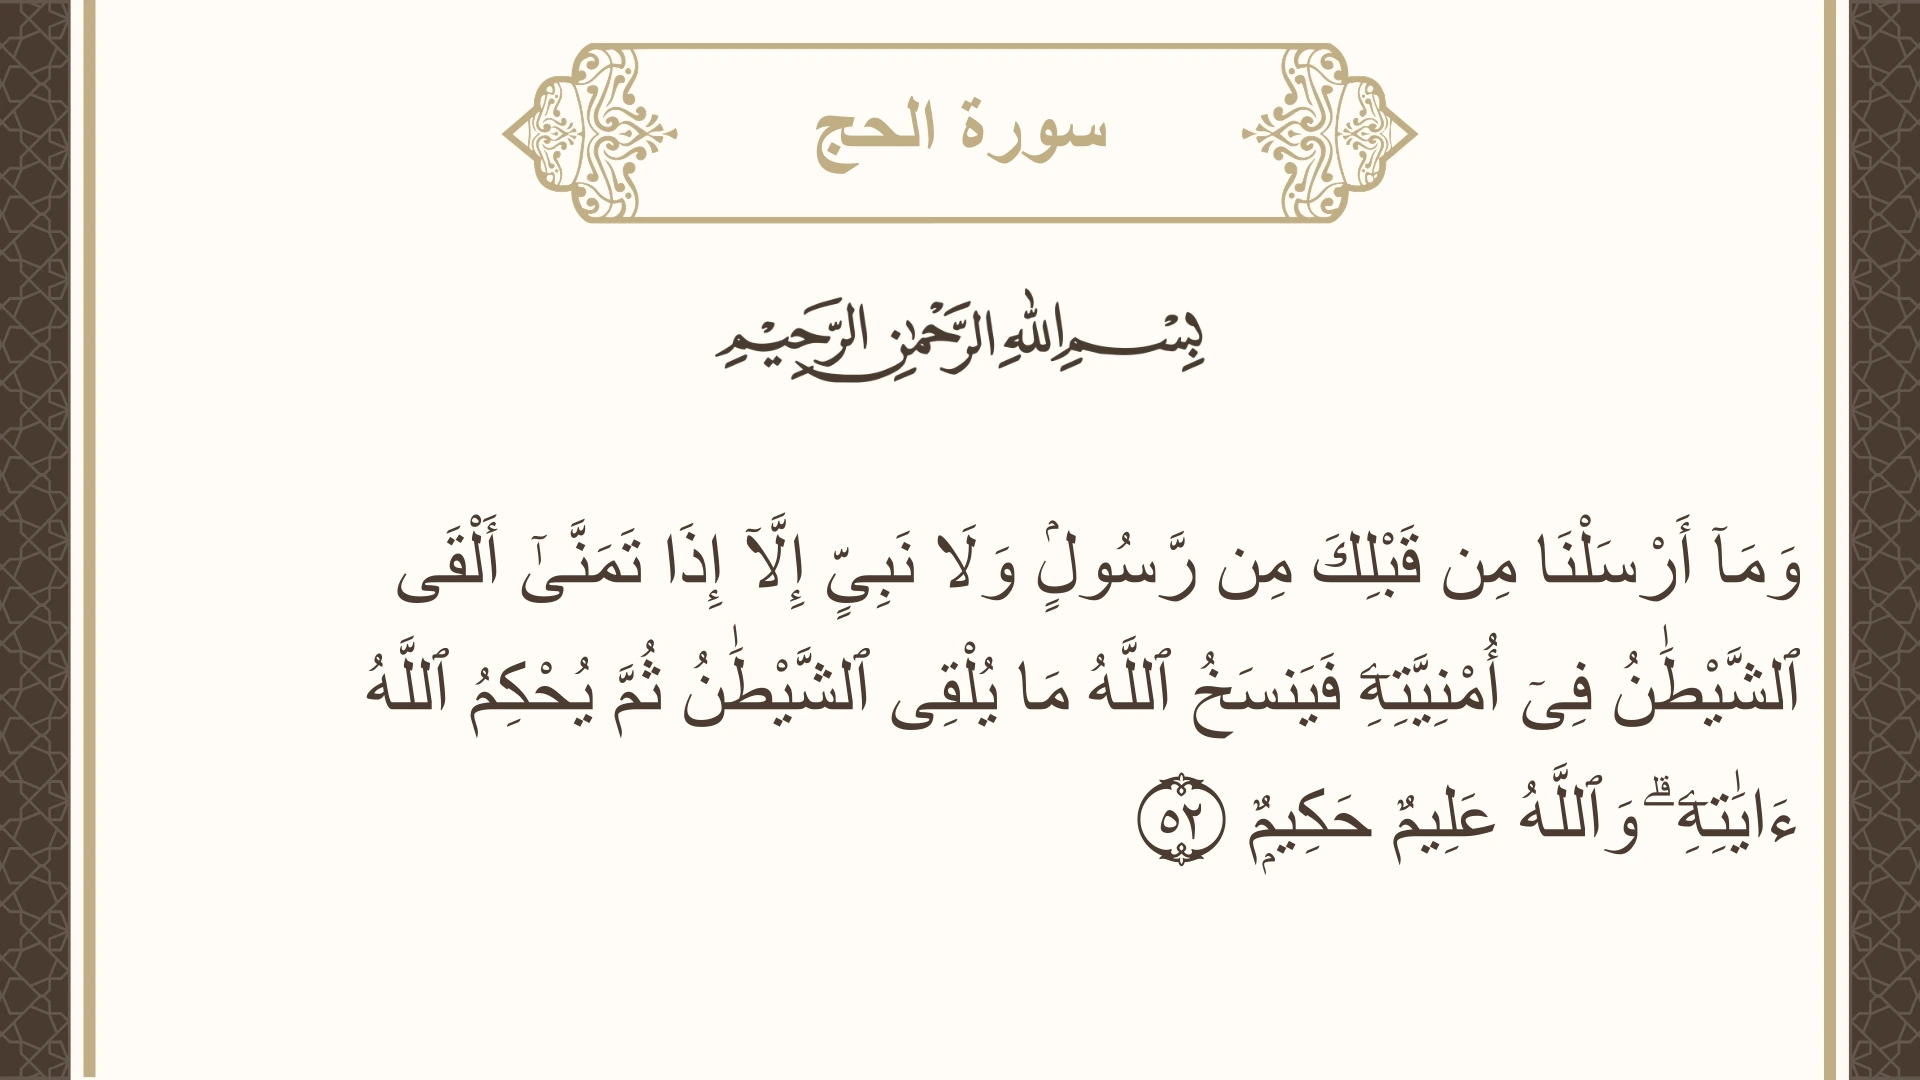 سورة الحج
بِسْمِ اللهِ الرَّحْمٰنِ الرَّحِيْمِ
وَمَآ أَرْسَلْنَا مِن قَبْلِكَ مِن رَّسُولٍۢ وَلَا نَبِىٍّ إِلَّآ إِذَا تَمَنَّىٰٓ أَلْقَى
ٱلشَّيْطَٰنُ فِىٓ أُمْنِيَّتِهِۦ فَيَنسَخُ ٱللَّهُ مَا يُلْقِى ٱلشَّيْطَٰنُ ثُمَّ يُحْكِمُ ٱللَّهُ
ءَايَٰتِهِۦ ۗ وَٱللَّهُ عَلِيمٌ حَكِيمٌۭ ٥٢